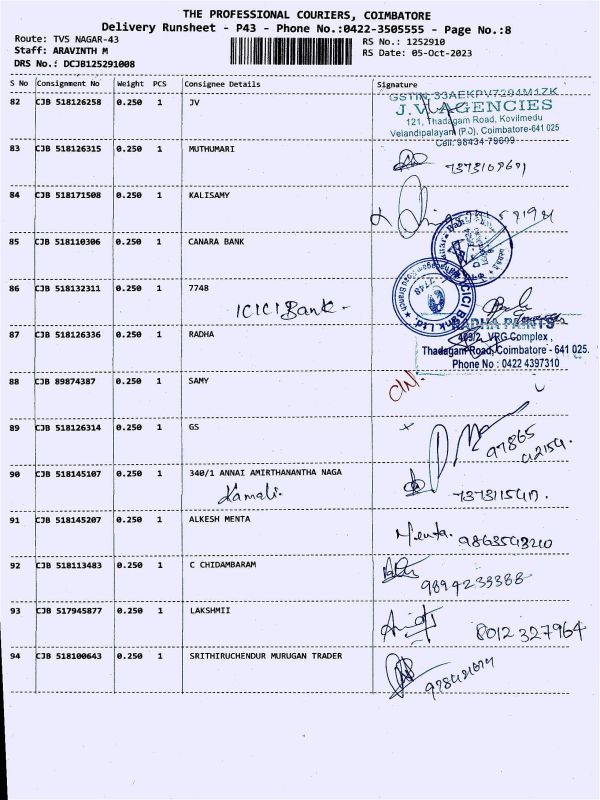 THE PROFESSIONAL COURIERS, COIMBATORE
Delivery Runsheet - P43 - Phone No.:0422-3505555 - Page No.:8
Route: TVS NAGAR-43 RS No.: 1252910
Staff: ARAVINTH M RS Date: 05-Oct-2023
DRS No.: DCJB125291008
S No Consignment No Weight PCS Consignee Details Signature
82 CJB 518126258 0.250 1 JV
GSTIN 33AEKPV7294M1ZK
J.V. AGENCIES
121, Thadagam Road, Kovilmedu
Velandipalayam (P.O), Coimbatore-641 025
Cell: 98434 79609
83 CJB 518126315 0.250 1 MUTHUMARI
84 CJB 518171508 0.250 1 KALISAMY
85 CJB 518110306 0.250 1 CANARA BANK
86 CJB 518132311 0.250 1 7748
ICICI Bank -
ICICI Bank Ltd.
7748
87 CJB 518126336 0.250 1 RADHA
RADHA PAINTS
VRG Complex,
Thadagam Road, Coimbatore - 641 025.
Phone No : 0422 4397310
88 CJB 89874387 0.250 1 SAMY
89 CJB 518126314 0.250 1 GS
90 CJB 518145107 0.250 1 340/1 ANNAI AMIRTHANANTHA NAGA
Kamali.
91 CJB 518145207 0.250 1 ALKESH MENTA
Menta. 9863543210
92 CJB 518113483 0.250 1 C CHIDAMBARAM
9894233388
93 CJB 517945877 0.250 1 LAKSHMII
8012327964
94 CJB 518100643 0.250 1 SRITHIRUCHENDUR MURUGAN TRADER